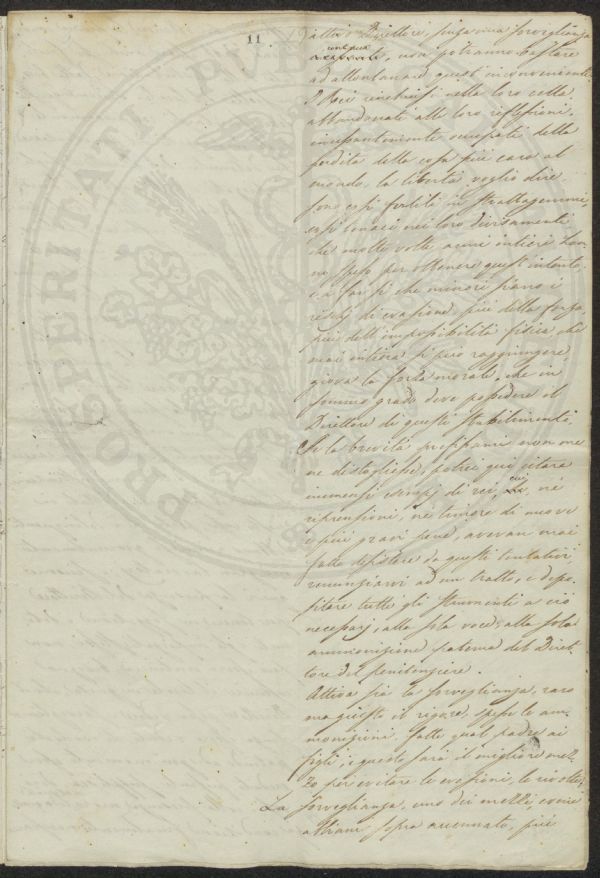 11
attivo Direttore, senza una sorveglianza
continua
non potranno bastare
ad allontanare quest'inconveniente.
I Rei rinchiusi nelle loro celle
abbandonati alle loro riflessioni,
incessantemente occupati della
perdita della cosa più cara al
mondo, la libertà voglio dire
sono così fertili in strattagemmi,
così tenaci nei loro divisamenti
che molte volte anni intieri han-
no speso per ottenere quest'intento
e a far sì che minori siano i
reati di evasione più della forza,
più dell'impossibilità fisica che
mai intiera si può raggiungere
giova la forza morale, che in
sommo grado deve possedere il
Direttore di questi stabilimenti.
Se la brevità prefissami non me
ne distogliesse, potrei qui citare
immensi esempj di rei, cui, nè
riprensioni, nè timore di nuove
e più gravi pene, avevan mai
fatto desistere da questi tentativi,
rinunziarvi ad un tratto, e depo-
sitare tutti gli strumenti a ciò
necessarj, alla sola voce, alla sola
ammonizione paterna del Diret-
tore del penitenziere.
Attiva sia la sorveglianza, raro
ma giusto il rigore, spesse le am-
monizioni, fatte qual padre ai
figli; e questo sarà il migliore mez-
zo per evitare le evasioni, le rivolte.
La sorveglianza, uno dei mezzi come
abbiam sopra accennato, più
PROSPERITATI PUB